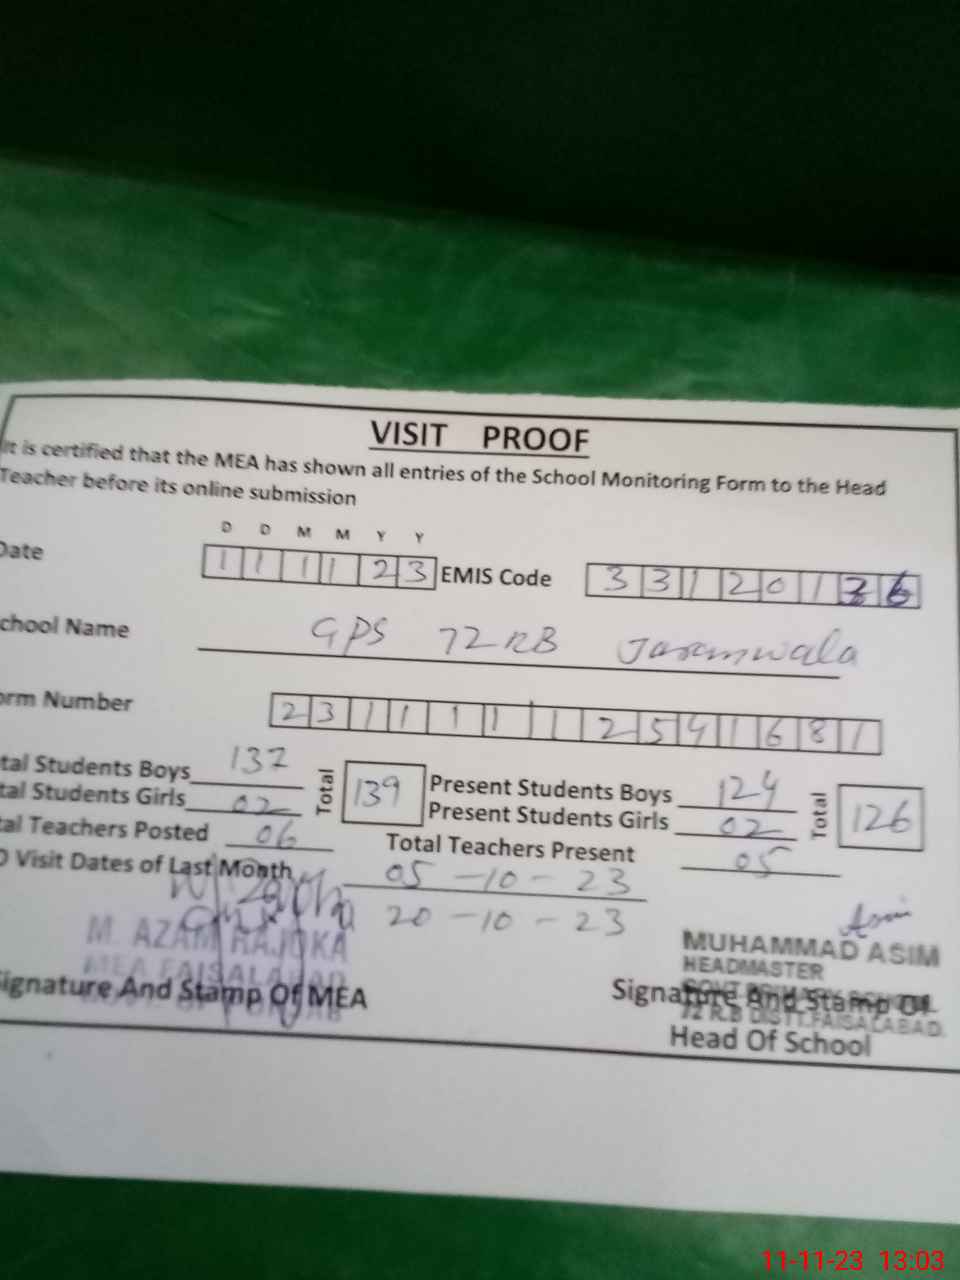 VISIT PROOF
It is certified that the MEA has shown all entries of the School Monitoring Form to the Head
Teacher before its online submission
D D M M Y Y
Date 1 1 1 1 2 3 EMIS Code 3 3 1 2 0 1 3 6
chool Name GPS 72 RB Jaranwala
orm Number 2 3 1 1 1 1 1 2 5 4 1 6 8 1
tal Students Boys 137 Total 139 Present Students Boys 124 Total 126
tal Students Girls 02 Present Students Girls 02
al Teachers Posted 06 Total Teachers Present 05
O Visit Dates of Last Month 05-10-23
20-10-23
Asim
M. AZAM RAJOKA
MEA FAISALABAD
MUHAMMAD ASIM
HEADMASTER
GOVT PRIMARY SCHOOL
72 R.B DISTT.FAISALABAD.
ignature And Stamp Of MEA
Signature And Stamp Of
Head Of School
11-11-23 13:03